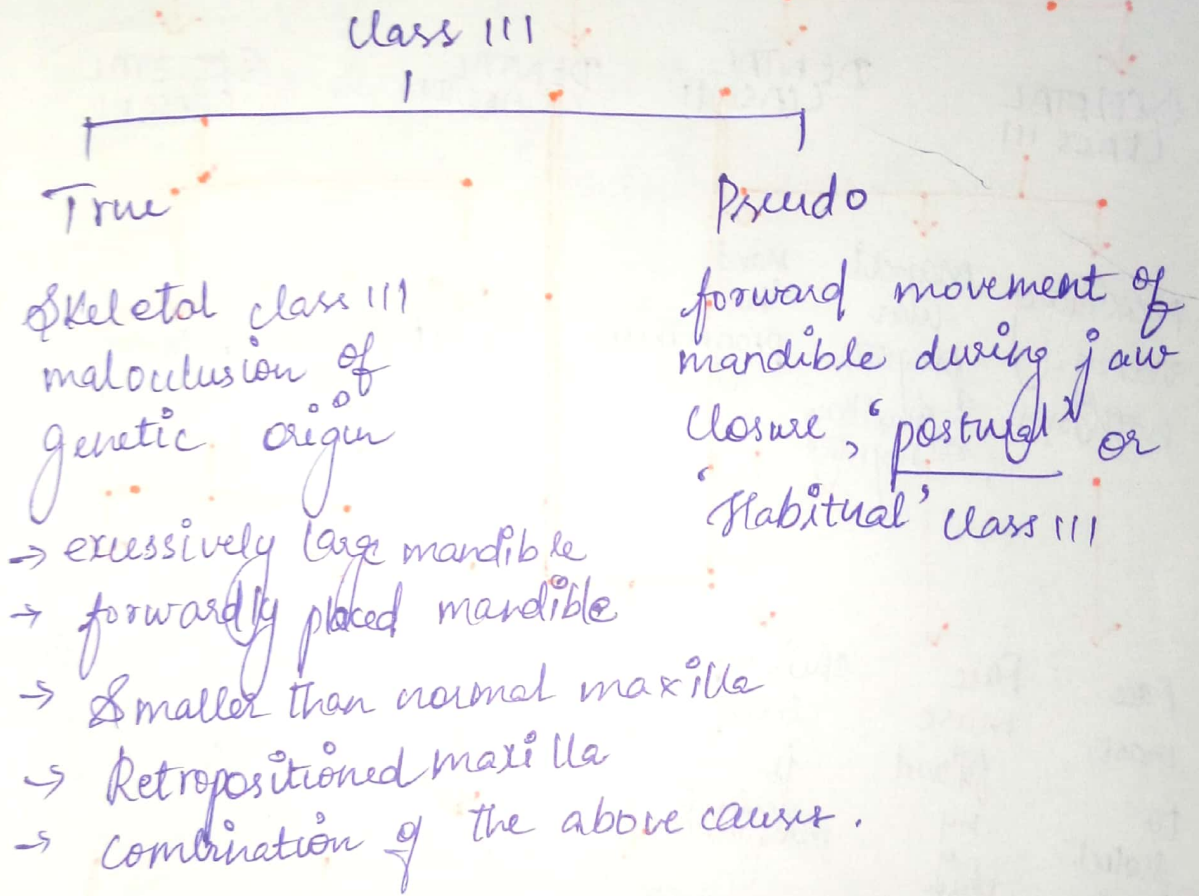 Class III
True
Skeletal class III
malocclusion of
genetic origin
→ excessively large mandible
→ forwardly placed mandible
→ Smaller than normal maxilla
→ Retropositioned maxilla
→ combination of the above causes.
Pseudo
forward movement of
mandible during jaw
closure, 'postural' or
'Habitual' class III